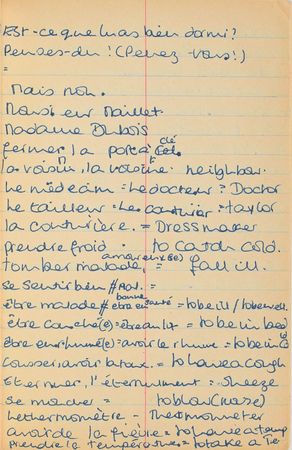 Est-ce que tu as bien dormi?
Penses-du! (Pensez-vous!)
=
Mais non.
Monsieur Maillet
Madame Dubois
fermer la porte à clé
le voisin, la voisine. neighbour.
Le médecin = Le docteur = Doctor
Le tailleur = Le couturier = taylor
La couturière. = Dressmaker
prendre froid. to catch cold.
tomber malade, amoureux(se) = fall ill.
se sentir bien #
être malade # être en bonne santé = to be ill / to be well
Être couché(e) = être au lit = to be in bed
être enrhumé(e) = avoir le rhume = to be in
tousser, avoir la toux. = to have a cough
Eternuer, l'éternument = sneeze
se moucher = to blow (nose)
le thermomètre - Thermometer
avoir de la fièvre = to have a temp
prendre la température = to take a Te